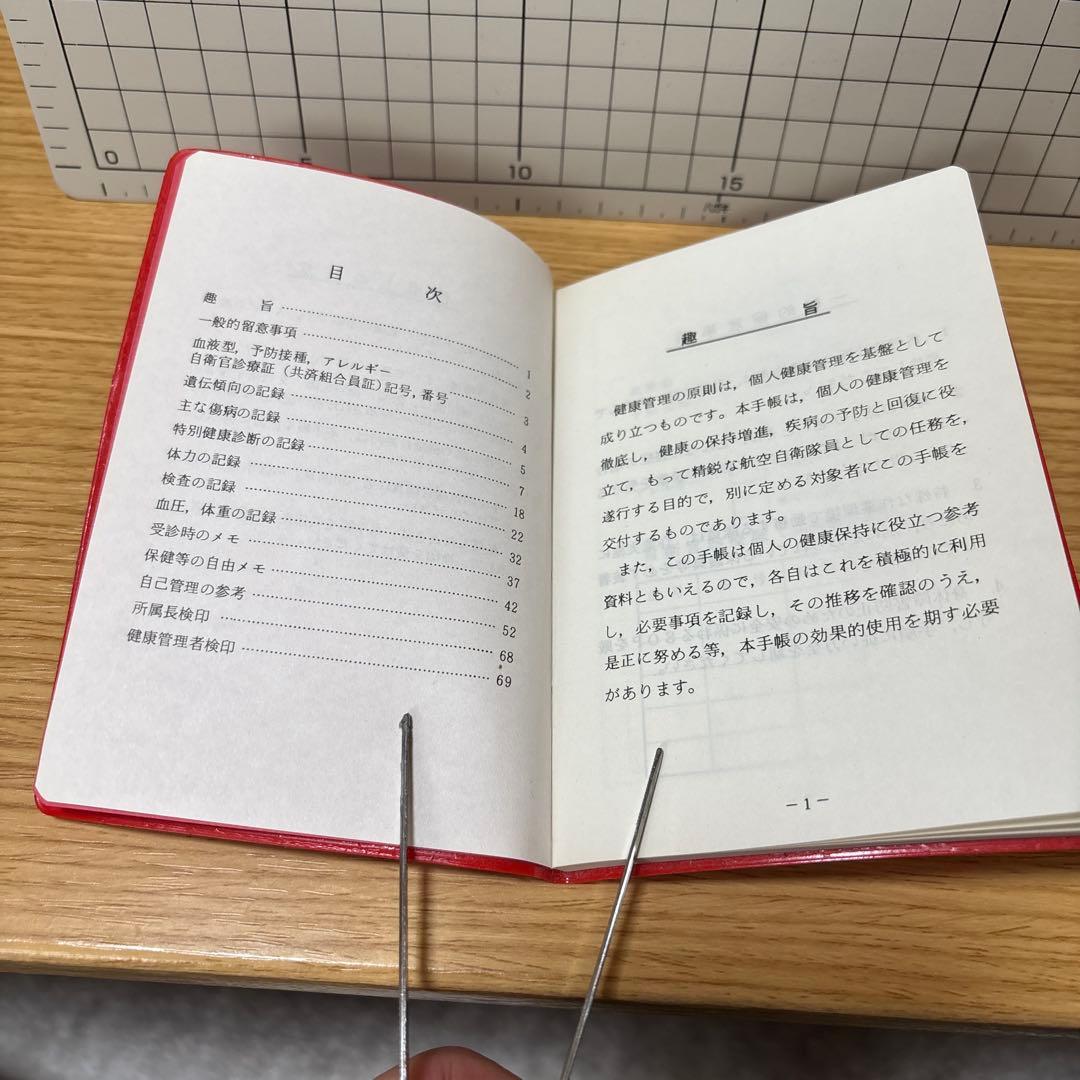 0 5 10 15
目 次
趣 旨 1
一般的留意事項 2
血液型,予防接種,アレルギー
自衛官診療証(共済組合員証)記号,番号 3
遺伝傾向の記録 4
主な傷病の記録 5
特別健康診断の記録 7
体力の記録 18
検査の記録 22
血圧,体重の記録 32
受診時のメモ 37
保健等の自由メモ 42
自己管理の参考 52
所属長検印 68
健康管理者検印 69
趣 旨
健康管理の原則は,個人健康管理を基盤として
成り立つものです。本手帳は,個人の健康管理を
徹底し,健康の保持増進,疾病の予防と回復に役
立て,もって精鋭な航空自衛隊員としての任務を,
遂行する目的で,別に定める対象者にこの手帳を
交付するものであります。
また,この手帳は個人の健康保持に役立つ参考
資料ともいえるので,各自はこれを積極的に利用
し,必要事項を記録し,その推移を確認のうえ,
是正に努める等,本手帳の効果的使用を期す必要
があります。
−1−